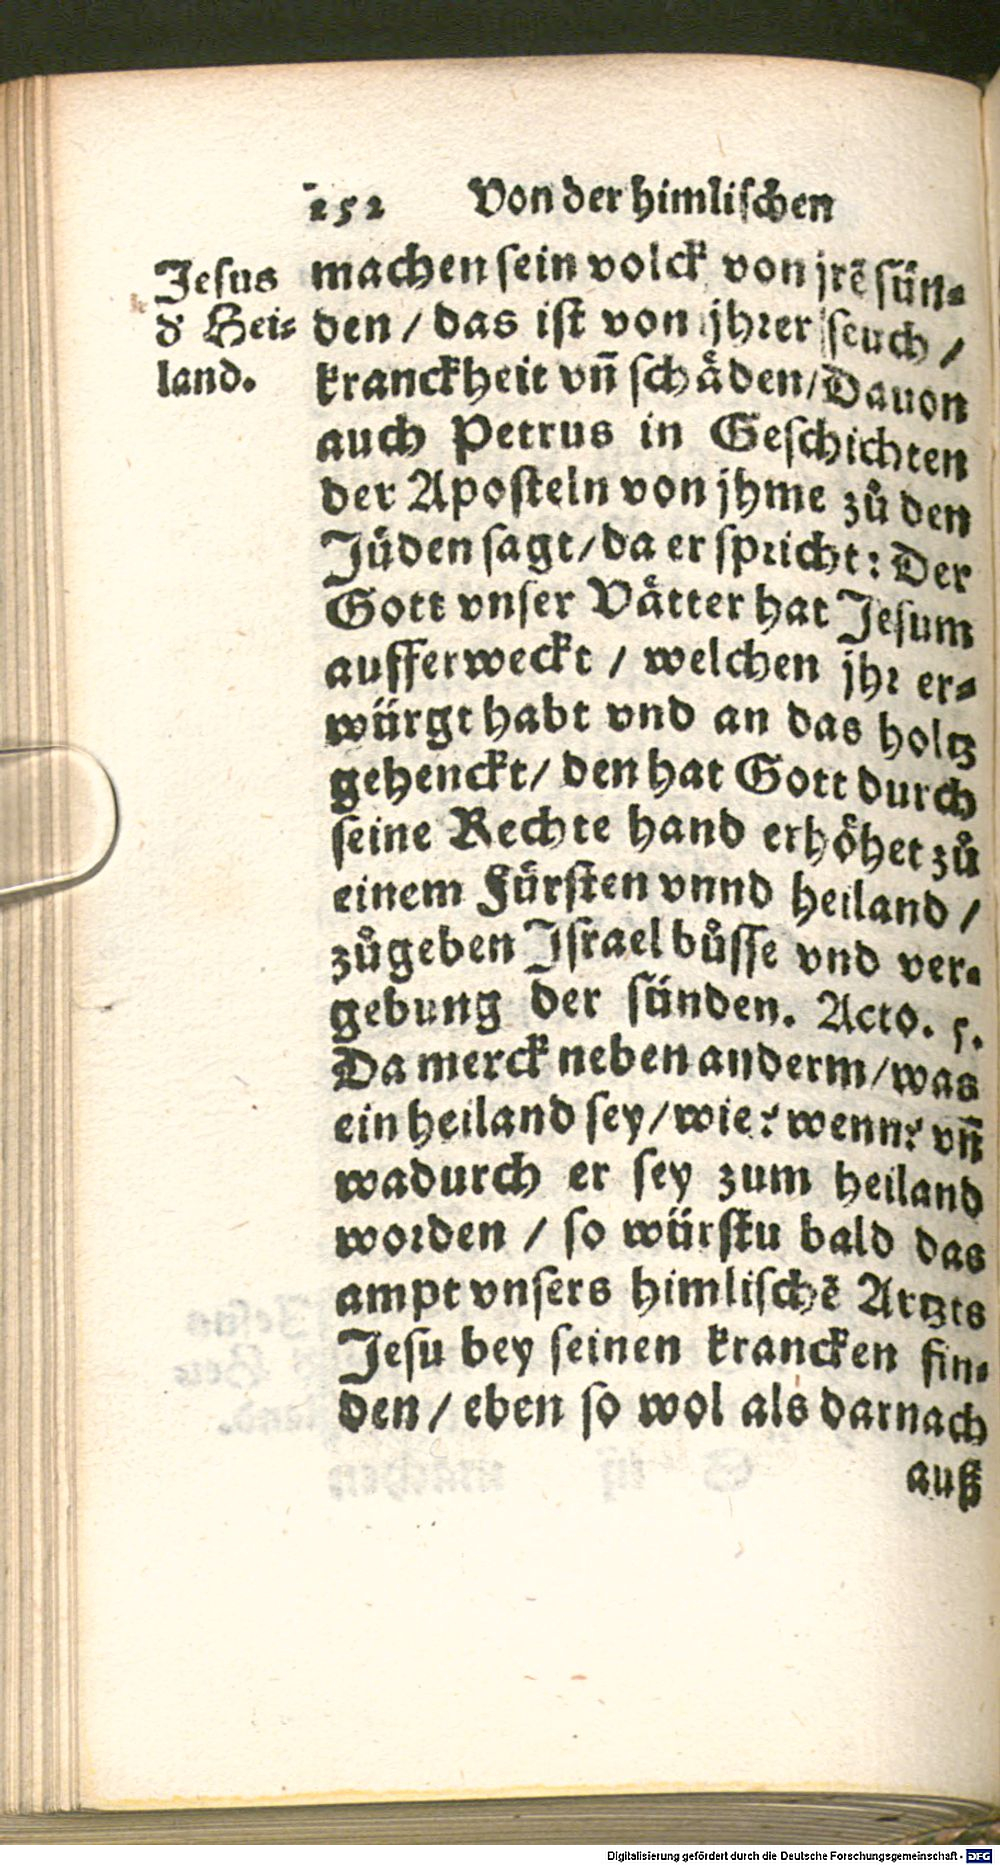 252 Von der himlischen
Jesus
d' Hei-
land.
machen sein volck von jrē sün-
den / das ist von jhrer seuch /
kranckheit vn̄ schäden / Dauon
auch Petrus in Geschichten
der Aposteln von jhme zů den
Jüden sagt / da er spricht: Der
Gott vnser Vätter hat Jesum
aufferweckt / welchen jhr er-
würgt habt vnd an das holtz
gehenckt / den hat Gott durch
seine Rechte hand erhöhet zů
einem Fürsten vnnd heiland /
zůgeben Israel bůsse vnd ver-
gebung der sünden. Acto. 5.
Da merck neben anderm / was
ein heiland sey / wie? wenn? vn̄
wadurch er sey zum heiland
worden / so würstu bald das
ampt vnsers himlischē Artzts
Jesu bey seinen krancken fin-
den / eben so wol als darnach
auß
Digitalisierung gefördert durch die Deutsche Forschungsgemeinschaft - DFG